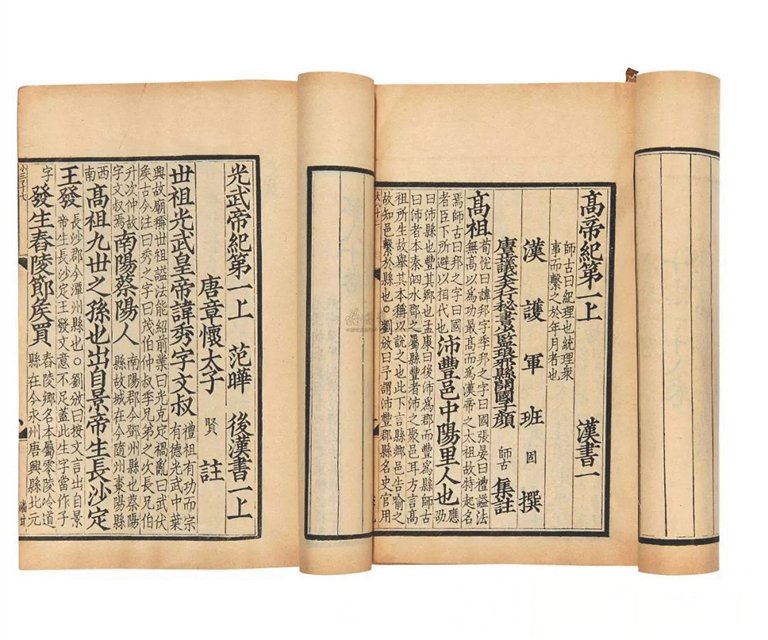 高帝紀第一上
師古曰紀理也統理衆
事而繫之於年月者也
漢書一
漢護軍班固撰
唐正議大夫行秘書少監琅邪縣開國子顏師古集註
高祖
荀悅曰諱邦字季邦之字曰國張晏曰禮謚法
無高以爲功最高而爲漢帝之太祖故特起名
焉師古曰邦之字曰國
者臣下所避以相代也
沛豐邑中陽里人也
應劭
曰沛縣也豐其鄉也孟康曰後沛爲郡而豐爲縣師古
曰沛者本秦泗水郡之屬縣豐者沛之聚邑耳方言高
祖所生故舉其本稱以說之也此下言縣鄉邑告喻之
故知邑繫於縣也○劉攽曰予謂沛豐郡縣名史官用
光武帝紀第一上 范曄 後漢書一上
唐章懷太子賢註
世祖光武皇帝諱秀字文叔
禮祖有功而宗
有德光武中葉
興故廟稱世祖謚法能紹前業曰光克定禍亂曰武伏
侯古今注曰秀之字曰茂伯仲叔季兄弟之次長兄伯
升次仲故
字文叔焉
南陽蔡陽人
南陽郡今鄧州縣也蔡陽
縣故城在今隨州棗陽縣
西
南
高祖九世之孫也出自景帝生長沙定
劉攽曰按文言出自景
帝生長沙定王發文意不足蓋此生字當作子
王發
長沙郡今潭州縣也
字
發生舂陵節侯買
舂陵鄉名本屬零陵泠道
縣在今永州唐興縣北元